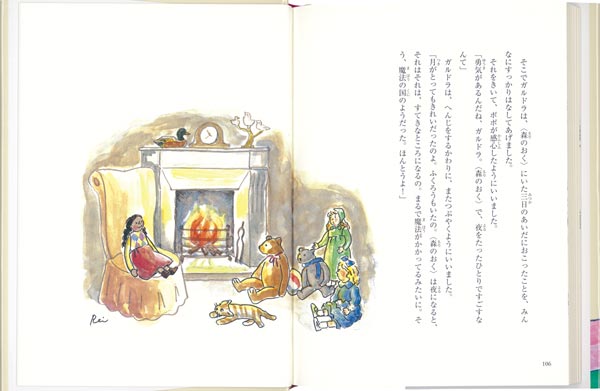 そこでガルドラは、〈森のおく〉にいた三日のあいだにおこったことを、みん
なにすっかりはなしてあげました。
それをきいて、ポポが感心したようにいいました。
「勇気があるんだね、ガルドラ。〈森のおく〉で、夜をたったひとりですごすな
んて」
ガルドラは、へんじをするかわりに、またつぶやくようにいいました。
「月がとってもきれいだったのよ。ふくろうもいたの。〈森のおく〉は夜になると、
それはそれは、すてきなところになるの。まるで魔法がかかってるみたいに。そ
う、魔法の国のようだった。ほんとうよ！」
106
Rei